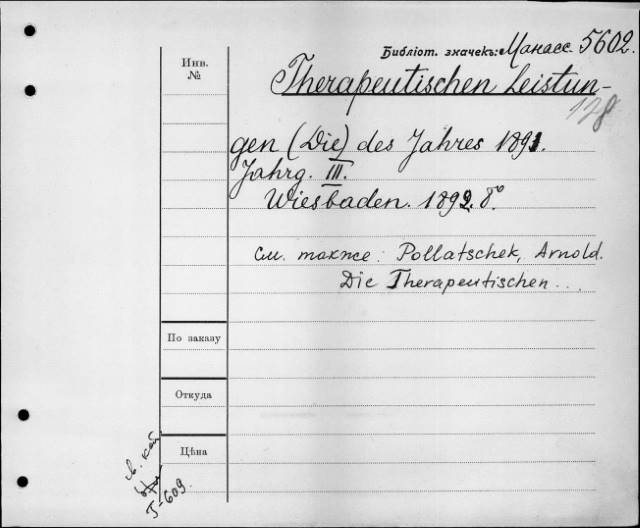 Библіот. значекъ: Манасс. 5602.
Инв.
№
Therapeutischen Leistun-
128
gen (Die) des Jahres 1891.
Jahrg. III.
Wiesbaden. 1892. 8º
См. также: Pollatschek, Arnold.
Die Therapeutischen...
По заказу
Откуда
Цѣна
T-609.